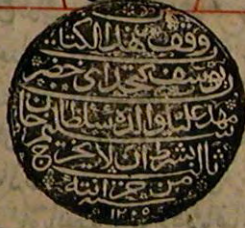 وقف هذا الكتاب
يوسف كتخداى خضر
مهد عليا والده سلطان
بشرط ان لا يخرج
من خزانته
١٢٠٥